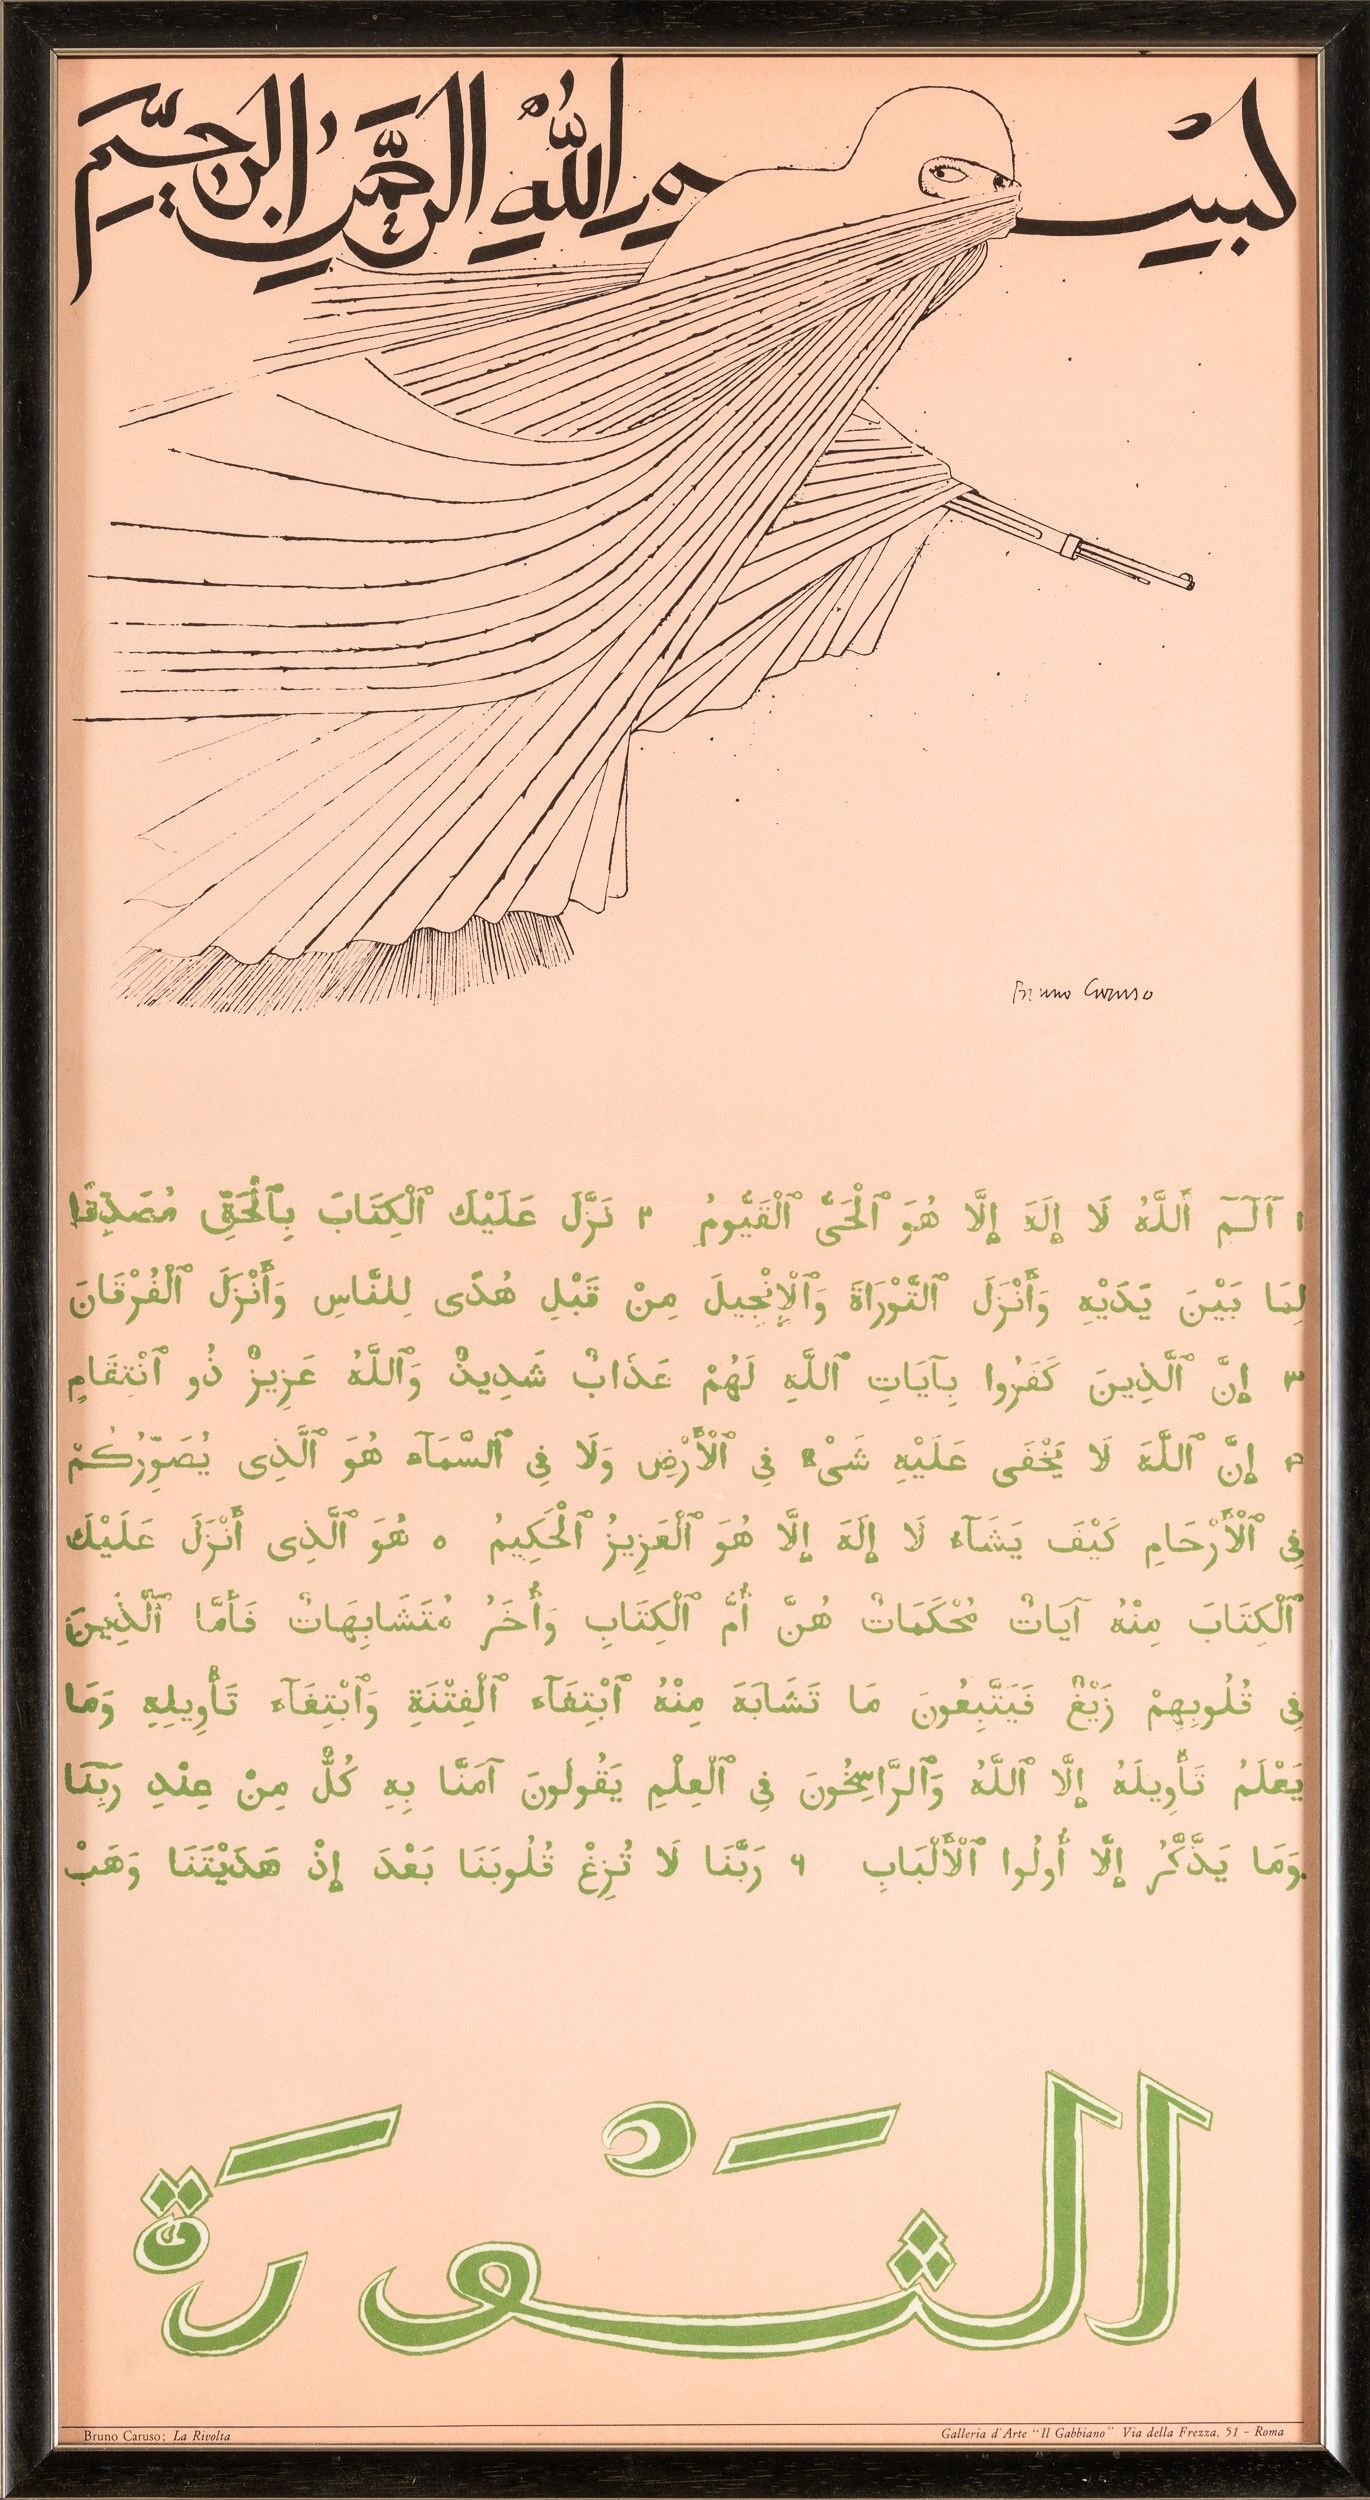 بِسْمِ اللهِ الرَّحْمٰنِ الرَّحِيْمِ
Bruno Caruso
١ آلٓمٓ ٱللَّهُ لَا إِلَهَ إِلَّا هُوَ ٱلْحَىُّ ٱلْقَيُّومُ ٢ نَزَّلَ عَلَيْكَ ٱلْكِتَابَ بِٱلْحَقِّ مُصَدِّقًا
لِمَا بَيْنَ يَدَيْهِ وَأَنْزَلَ ٱلتَّوْرَاةَ وَٱلْإِنْجِيلَ مِنْ قَبْلِ هُدًى لِلنَّاسِ وَأَنْزَلَ ٱلْفُرْقَانَ
٣ إِنَّ ٱلَّذِينَ كَفَرُوا بِآيَاتِ ٱللَّهِ لَهُمْ عَذَابٌ شَدِيدٌ وَٱللَّهُ عَزِيزٌ ذُو ٱنْتِقَامٍ
٤ إِنَّ ٱللَّهَ لَا يَخْفَى عَلَيْهِ شَىْءٌ فِي ٱلْأَرْضِ وَلَا فِي ٱلسَّمَآءِ هُوَ ٱلَّذِى يُصَوِّرُكُمْ
فِي ٱلْأَرْحَامِ كَيْفَ يَشَآءُ لَا إِلَهَ إِلَّا هُوَ ٱلْعَزِيزُ ٱلْحَكِيمُ ٥ هُوَ ٱلَّذِى أَنْزَلَ عَلَيْكَ
ٱلْكِتَابَ مِنْهُ آيَاتٌ مُحْكَمَاتٌ هُنَّ أُمُّ ٱلْكِتَابِ وَأُخَرُ مُتَشَابِهَاتٌ فَأَمَّا ٱلَّذِينَ
فِي قُلُوبِهِمْ زَيْغٌ فَيَتَّبِعُونَ مَا تَشَابَهَ مِنْهُ ٱبْتِغَآءَ ٱلْفِتْنَةِ وَٱبْتِغَآءَ تَأْوِيلِهِ وَمَا
يَعْلَمُ تَأْوِيلَهُ إِلَّا ٱللَّهُ وَٱلرَّاسِخُونَ فِي ٱلْعِلْمِ يَقُولُونَ آمَنَّا بِهِ كُلٌّ مِنْ عِنْدِ رَبِّنَا
وَمَا يَذَّكَّرُ إِلَّا أُولُوا ٱلْأَلْبَابِ ٦ رَبَّنَا لَا تُزِغْ قُلُوبَنَا بَعْدَ إِذْ هَدَيْتَنَا وَهَبْ
الثَوْرَة
Bruno Caruso: La Rivolta
Galleria d'Arte "Il Gabbiano" Via della Frezza, 51 - Roma